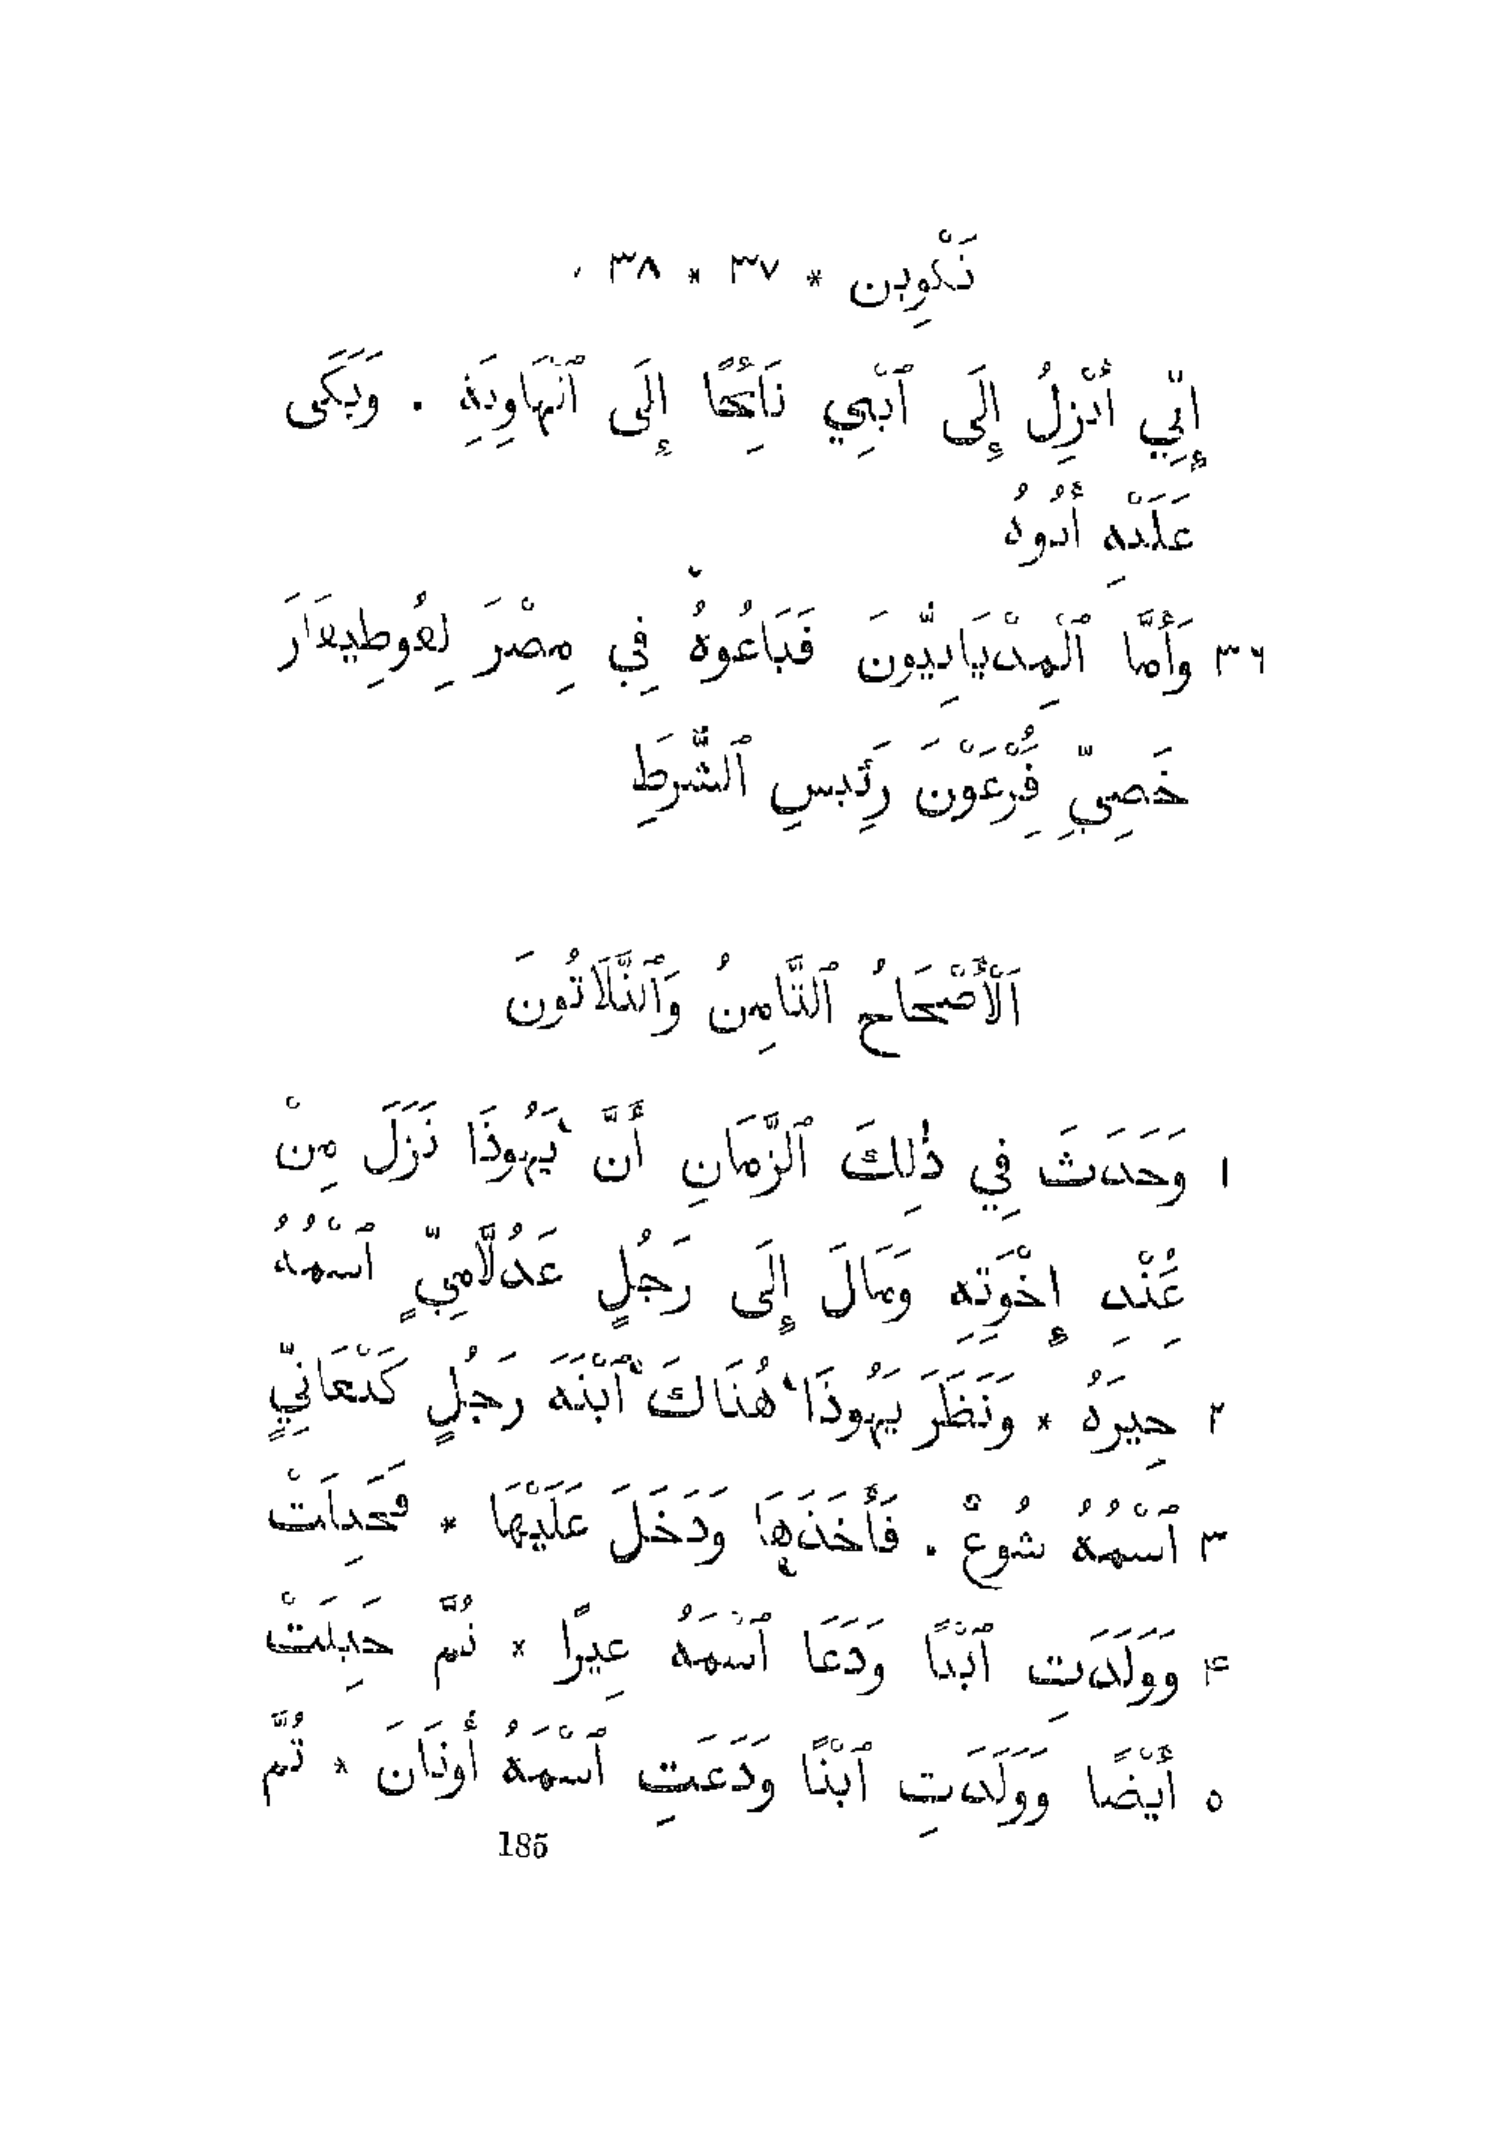 تَكْوِين * ٣٧ * ٣٨ .
إِنِّي أَنْزِلُ إِلَى ٱبْنِي نَائِحًا إِلَى ٱلْهَاوِيَةِ . وَبَكَى
عَلَيْهِ أَبُوهُ
٣٦ وَأَمَّا ٱلْمِدْيَانِيُّونَ فَبَاعُوهُ فِي مِصْرَ لِفُوطِيفَارَ
خَصِيِّ فِرْعَوْنَ رَئِيسِ ٱلشُّرَطِ
اَلْأَصْحَاحُ ٱلثَّامِنُ وَٱلثَّلَاثُونَ
١ وَحَدَثَ فِي ذٰلِكَ ٱلزَّمَانِ أَنَّ يَهُوذَا نَزَلَ مِنْ
عِنْدِ إِخْوَتِهِ وَمَالَ إِلَى رَجُلٍ عَدُلَّامِيٍّ ٱسْمُهُ
٢ حِيرَةُ * وَنَظَرَ يَهُوذَا هُنَاكَ ٱبْنَةَ رَجُلٍ كَنْعَانِيٍّ
٣ ٱسْمُهُ شُوعٌ . فَأَخَذَهَا وَدَخَلَ عَلَيْهَا * فَحَبِلَتْ
۴ وَوَلَدَتِ ٱبْنًا وَدَعَا ٱسْمَهُ عِيرًا * ثُمَّ حَبِلَتْ
٥ أَيْضًا وَوَلَدَتِ ٱبْنًا وَدَعَتِ ٱسْمَهُ أُونَانَ * ثُمَّ
185